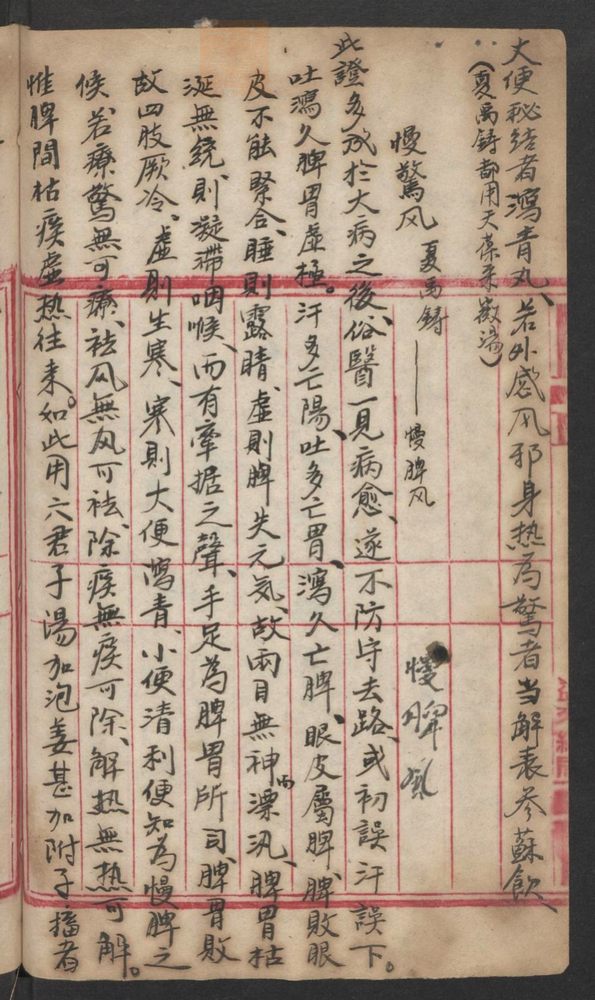 大便秘结者瀉青丸、若外感风邪身热為驚者当解表参蘇飲、
(夏禹鋳都用天保采薇湯)
慢驚风 夏禹鋳——慢脾风
慢脾氣
此證多成於大病之後、俗醫一見病愈、遂不防守去路、或初誤汗誤下。
吐瀉久脾胃虛極。汗多亡陽、吐多亡胃、瀉久亡脾、眼皮屬脾、脾敗眼
皮不能緊合、睡則露睛、虛則脾失元気、故兩目無神而漂汎、脾胃枯
涎無統、則凝滞咽喉、而有牽据之聲、手足為脾胃所司、脾胃敗
故四肢厥冷、虛則生寒、寒則大便瀉青、小便清利便知為慢脾之
候、若療驚無可療、祛风無风可祛、除痰無痰可除、解热無热可解。
惟脾間枯痰虛热往来。如此用六君子湯加泡姜甚加附子搐者